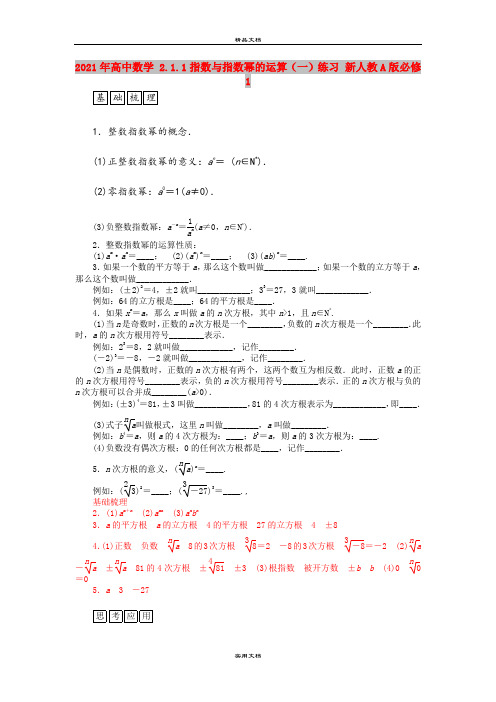 精品文档
2021年高中数学 2.1.1指数与指数幂的运算（一）练习 新人教A版必修
1
基 础 梳 理
1．整数指数幂的概念．
(1)正整数指数幂的意义：aⁿ＝ (n∈N*)．
(2)零指数幂：a⁰＝1(a≠0)．
(3)负整数指数幂：a⁻ⁿ＝1/aⁿ(a≠0，n∈N*)．
2．整数指数幂的运算性质：
(1)aᵐ·aⁿ＝____； (2)(aᵐ)ⁿ＝____； (3)(ab)ⁿ＝____．
3．如果一个数的平方等于a，那么这个数叫做____________；如果一个数的立方等于a，
那么这个数叫做____________．
例如：(±2)²＝4，±2就叫____________；3³＝27，3就叫____________．
例如：64的立方根是____；64的平方根是____．
4．如果xⁿ＝a，那么x叫做a的n次方根，其中n>1，且n∈N*．
(1)当n是奇数时，正数的n次方根是一个________，负数的n次方根是一个________．此
时，a的n次方根用符号________表示．
例如：2³＝8，2就叫做____________，记作________．
(－2)³＝－8，－2就叫做____________，记作________．
(2)当n是偶数时，正数的n次方根有两个，这两个数互为相反数．此时，正数a的正
的n次方根用符号________表示，负的n次方根用符号________表示．正的n次方根与负的
n次方根可以合并成________(a>0)．
例如：(±3)⁴＝81，±3叫做____________，81的4次方根表示为____________，即____．
(3)式子ⁿ√a叫做根式，这里n叫做________，a叫做________．
例如：b⁴＝a，则a的4次方根为：____；b³＝a，则a的3次方根为：____．
(4)负数没有偶次方根；0的任何次方根都是____，记作________．
5．n次方根的意义，(ⁿ√a)ⁿ＝____．
例如：(²√3)²＝____；(³√－27)³＝____．,
基础梳理
2．(1)aᵐ⁺ⁿ (2)aᵐⁿ (3)aⁿbⁿ
3．a的平方根 a的立方根 4的平方根 27的立方根 4 ±8
4.(1)正数 负数 ⁿ√a 8的3次方根 ³√8＝2 －8的3次方根 ³√－8＝－2 (2)ⁿ√a
－ⁿ√a ±ⁿ√a 81的4次方根 ±⁴√81 ±3 (3)根指数 被开方数 ±b b (4)0 ⁿ√0
＝0
5．a 3 －27
思 考 应 用
实用文档